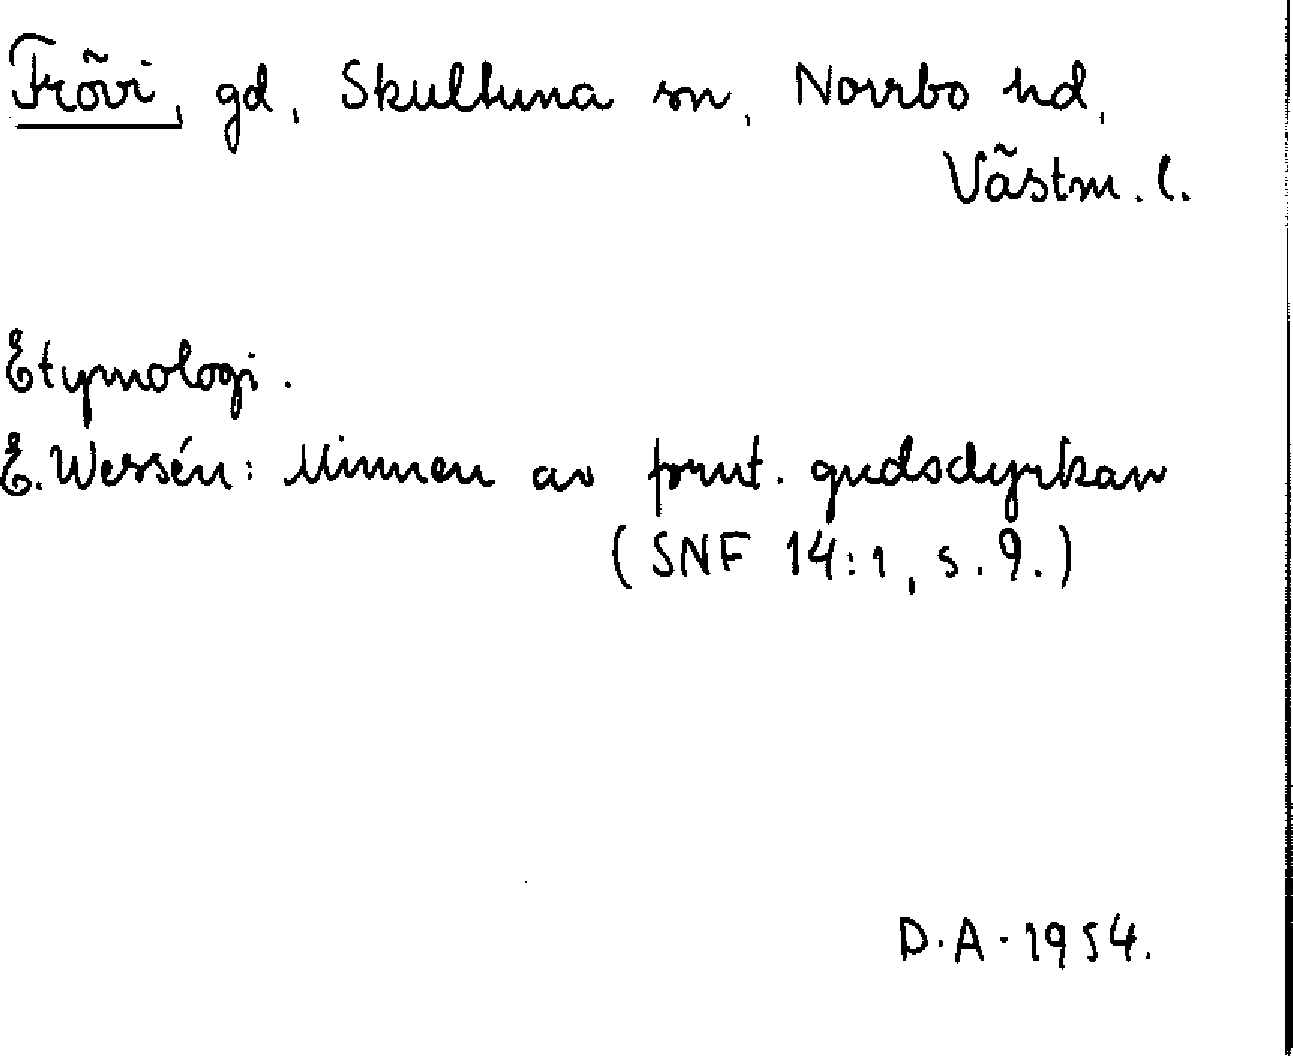 Frövi, gd, Skultuna sn, Norrbo hd,
Västm. l.
Etymologi.
E. Wessén: Minnen av fornt. gudsdyrkan
(SNF 14:1, s. 9.)
D.A. 1954.